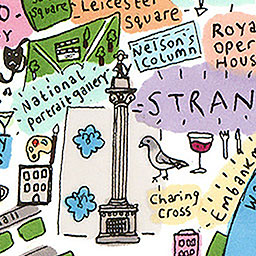 Leicester
Square
Nelson's
Column
Roya
Opera
House
National
Portrait gallery
STRAN
Charing
Cross
Embankm